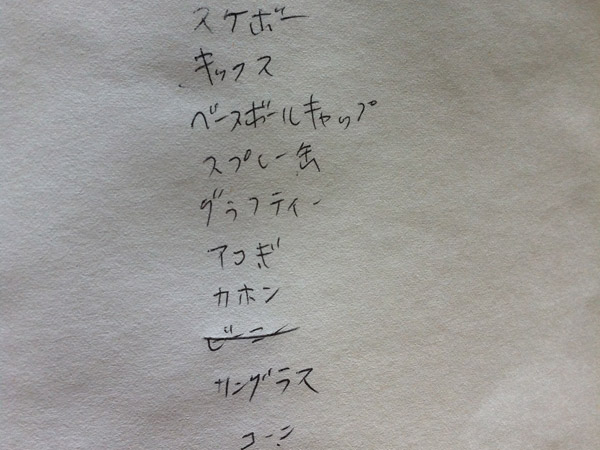 スケボー
キックス
ベースボールキャップ
スプレー缶
グラフティー
アコギ
カホン
ビニー
サングラス
コーン